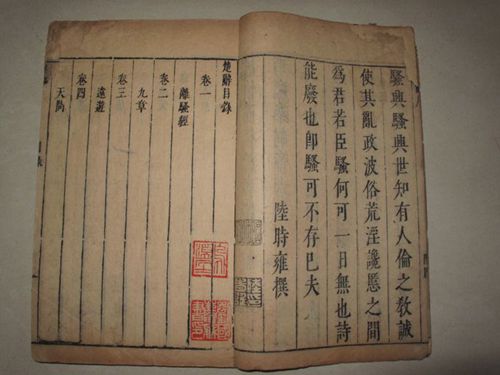 騷興騷興世知有人倫之教誠
使其亂政波俗荒淫讒慝之間
爲君若臣騷何可一日無也詩
能廢也卽騷可不存已夫
陸時雍撰
楚辭目錄
卷一
離騷經
卷二
九章
卷三
遠遊
卷四
天問